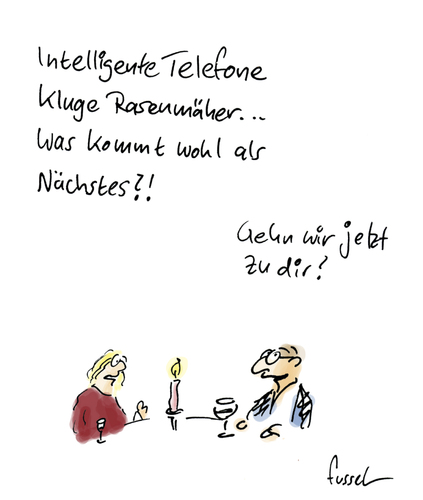 Intelligente Telefone
Kluge Rasenmäher...
Was kommt wohl als
Nächstes?!
Gehn wir jetzt
zu dir?
fussel